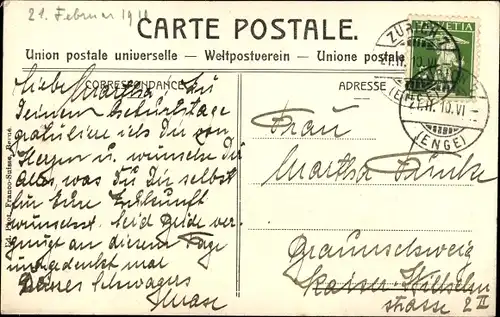 21. Februar 1911
CARTE POSTALE.
Union postale universelle. — Weltpostverein. — Unione postale
CORRESPONDANCE
ADRESSE
HELVETIA
ZÜRICH
(ENGE)
Liebe Martha! Zu
Deinem Geburtstage
gratuliere ich Dir von
Herzen u. wünsche Dir
Alles, was Du Dir selbst
für Eine Zukunft
wünschst. Seid Beide ver-
gnügt an diesem Tage
und gedenkt mal
Deines Schwagers
Frau
Martha
Braunschweig
Kaiser-Wilhelm
strasse 2 II
Ed. Phot. Franco-Suisse, Berne